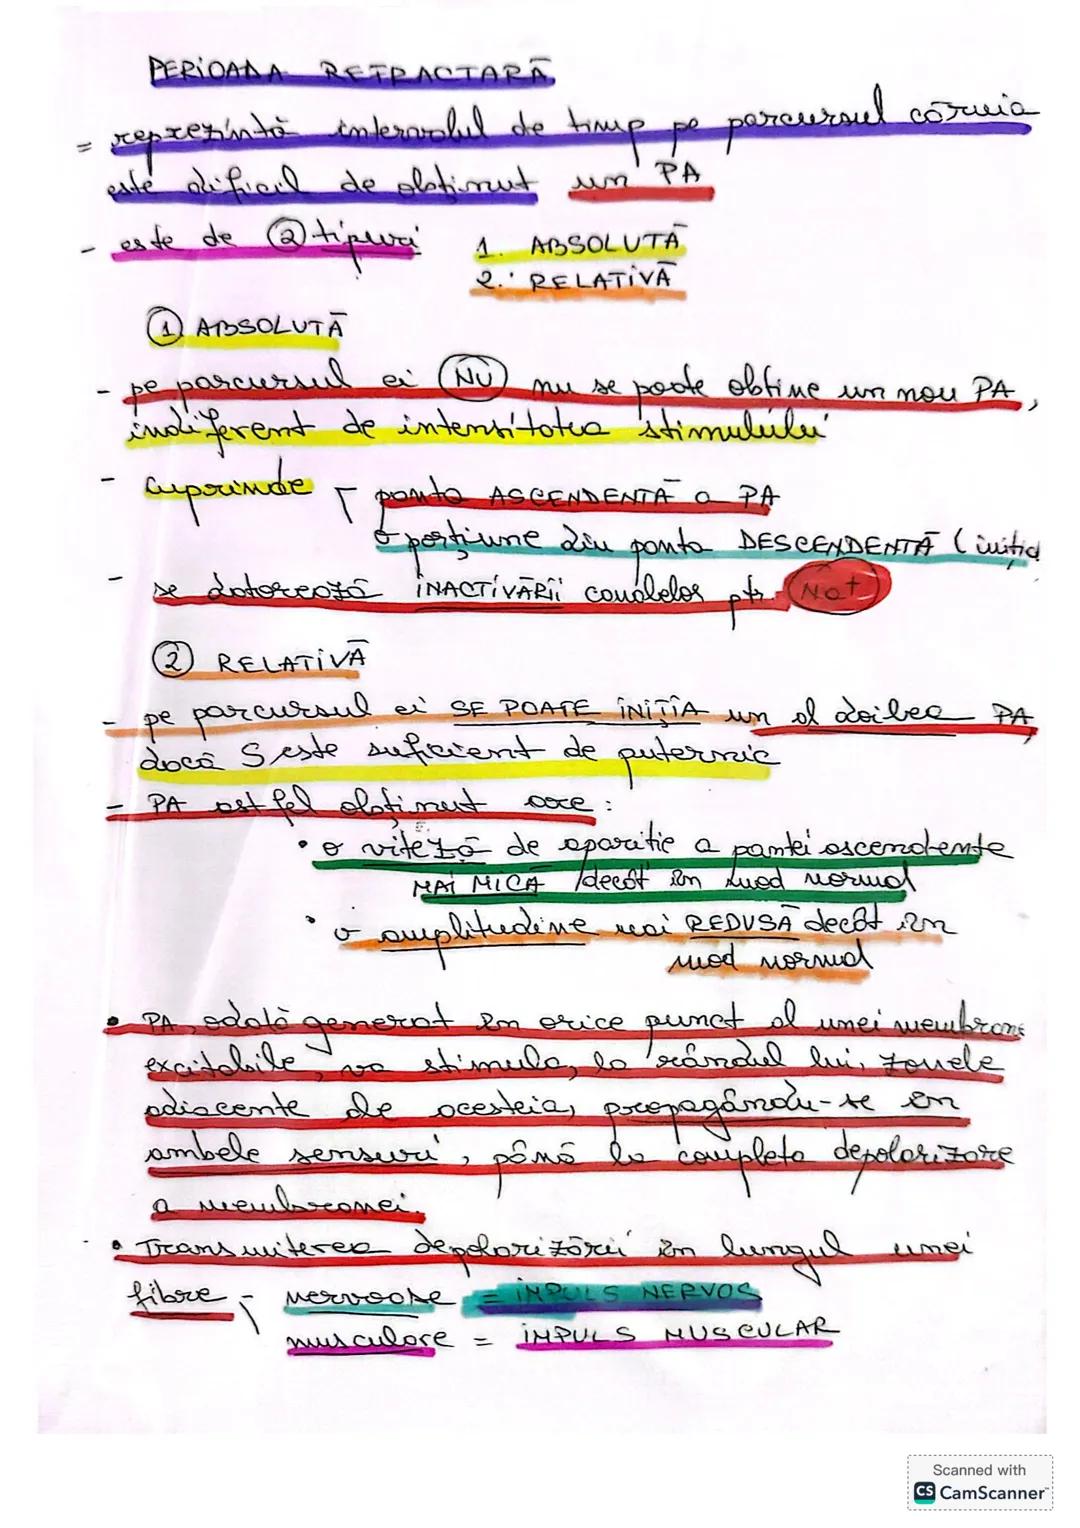 PERIOADA REFRACTARĂ
= reprezintă intervalul de timp pe parcursul căruia
este dificil de obținut un PA
- este de 2 tipuri 1. ABSOLUTĂ
2. RELATIVĂ
1 ABSOLUTĂ
- pe parcursul ei NU nu se poate obține un nou PA,
indiferent de intensitatea stimulului
- cuprinde panta ASCENDENTĂ a PA
o porțiune din panta DESCENDENTĂ (iniția
- se datorează INACTIVĂRII canalelor ptr. Na+
2 RELATIVĂ
- pe parcursul ei SE POATE INIȚIA un al doilea PA
dacă S este suficient de puternic
- PA astfel obținut are:
• o viteză de apariție a pantei ascendente
MAI MICĂ decât în mod normal
• o amplitudine mai REDUSĂ decât în
mod normal
• PA, odată generat în orice punct al unei membrane
excitabile, va stimula, la rândul lui, zonele
adiacente de acesteia, propagându-se în
ambele sensuri, până la completa depolarizare
a membranei.
• Transmiterea depolarizării în lungul unei
fibre - nervoase = IMPULS NERVOS
musculare = IMPULS MUSCULAR
Scanned with
CS CamScanner